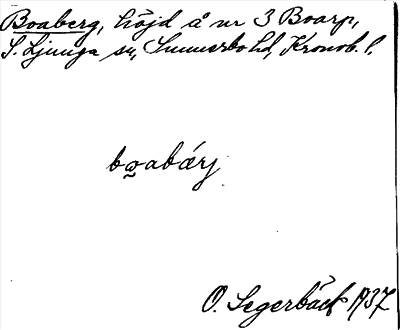 Boaberg, höjd å nr 3 Boarp,
S. Ljunga sn, Sunnerbo hd, Kronob. l.
bωabárj
O. Segerbäck 1937